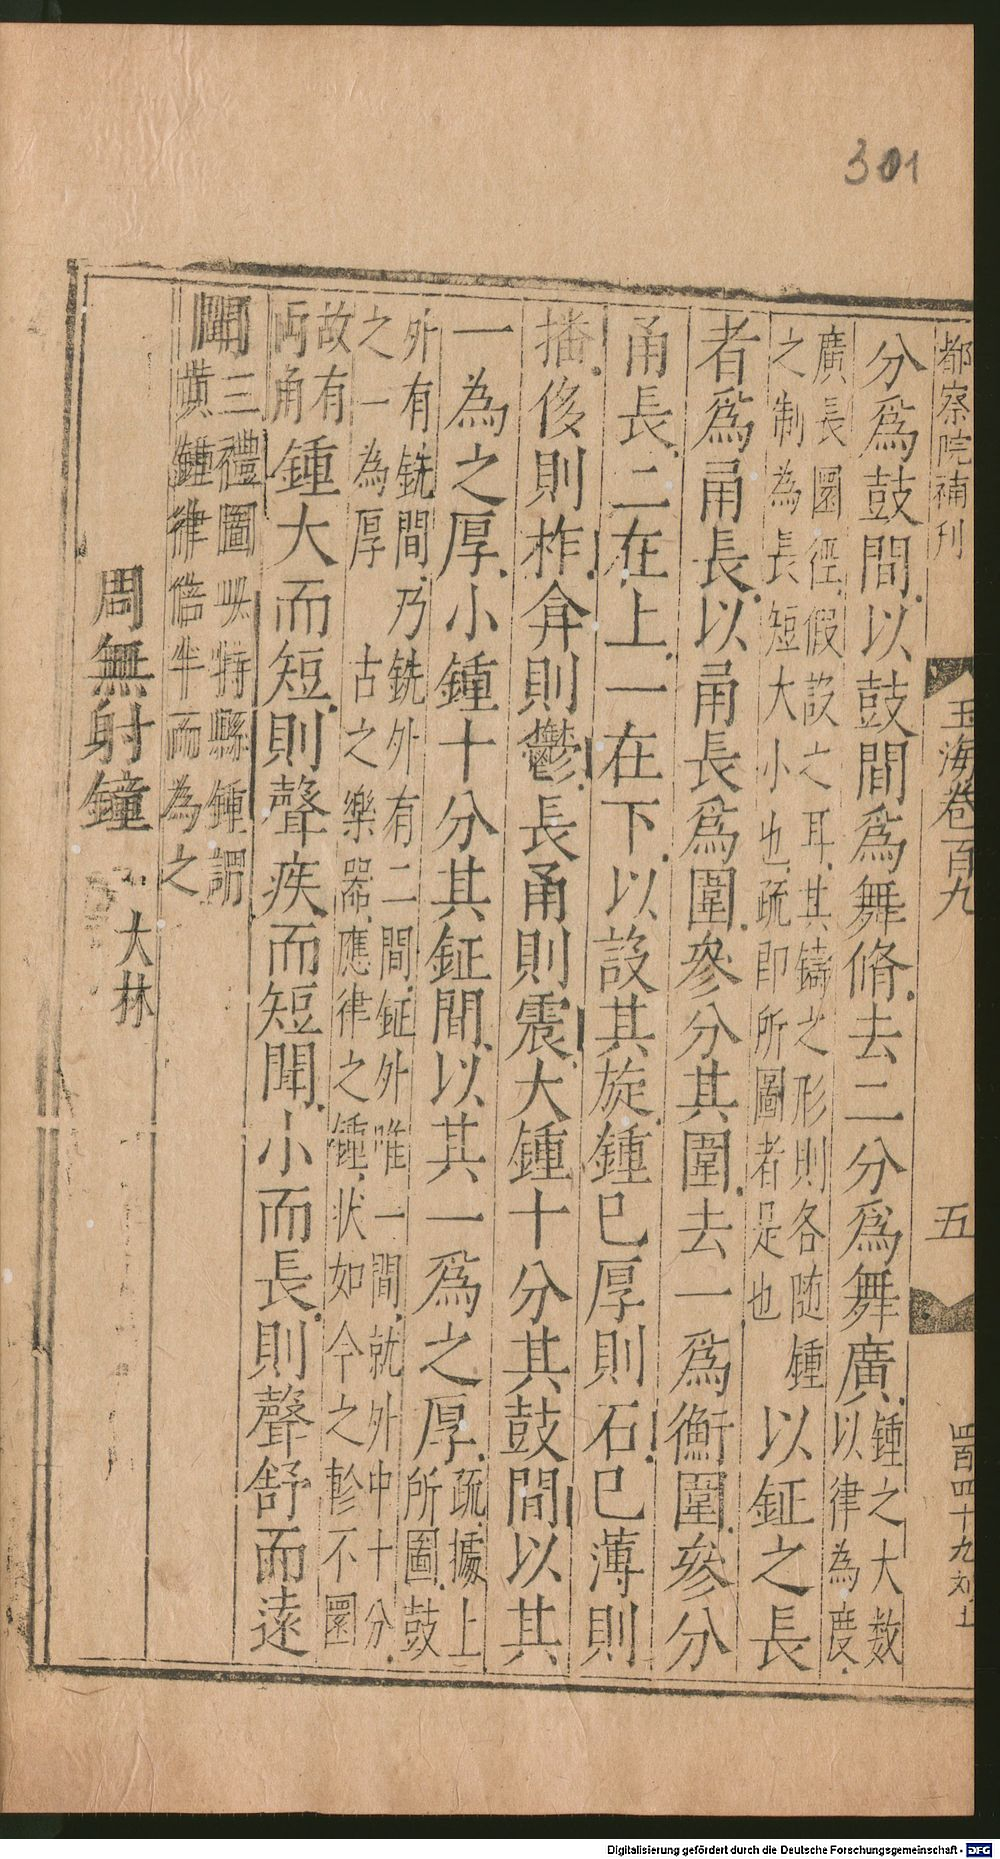 301
都察院補刊
玉海卷百九
五
四百四十九
分爲鼓間以鼓間爲舞脩去二分爲舞廣鍾之大数以律為度
廣長圜徑假設之耳其鑄之形則各随鍾之制為長短大小也疏即所圖者是也以鉦之長
者爲甬長以甬長爲圍參分其圍去一爲衡圍參分
甬長二在上一在下以設其旋鍾已厚則石已薄則
播侈則柞弇則鬱長甬則震大鍾十分其鼓間以其
一為之厚小鍾十分其鉦間以其一爲之厚疏據上所圖鼓
外有銑間乃銑外有二間鉦外唯一間就外中十分之一為厚古之樂器應律之鍾状如今之軫不圜
故有両角鍾大而短則聲疾而短聞小而長則聲舒而遠
聞三禮圖特縣鍾謂黄鍾律倍半而為之
周無射鐘
大林
Digitalisierung gefördert durch die Deutsche Forschungsgemeinschaft - DFG